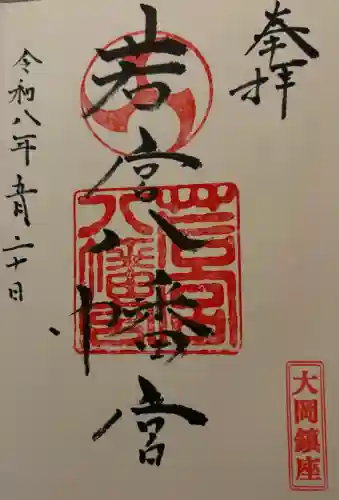 奉拝
若宮八幡宮
令和八年五月二十日
若宮八幡宮
大岡鎮座